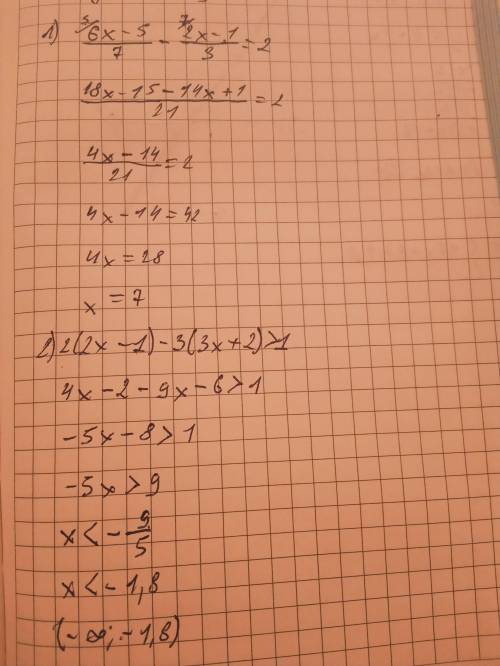 1) 3/ 6x-5 / 7 - 7/ 2x-1 / 3 = 2
18x-15-14x+1 / 21 = 2
4x-14 / 21 = 2
4x-14=42
4x=28
x = 7
2) 2(2x-1)-3(3x+2)>1
4x-2-9x-6>1
-5x-8>1
-5x>9
x<-9/5
x<-1,8
(-∞;-1,8)